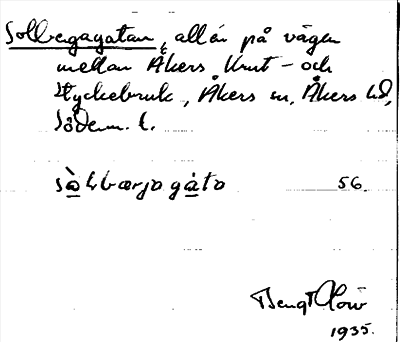 Solbergagatan, allén på vägen
mellan Åkers krut- och
styckebruk, Åkers sn, Åkers hd,
Söderm. l.
sò̱ɫbærjagà̱ta 56.
Bengt Löw
1935.